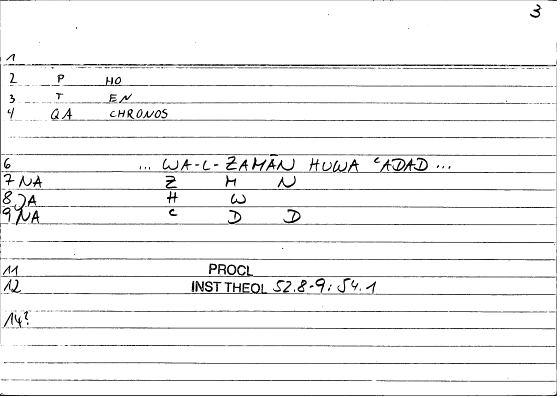 3
1
2 P HO
3 T EN
4 QA CHRONOS
6 ... WA-L-ZAMĀN HUWA ʿADAD ...
7 NA Z M N
8 JA H W
9 NA ʿ D D
11 PROCL
12 INST THEOL 52.8-9; 54.1
14?